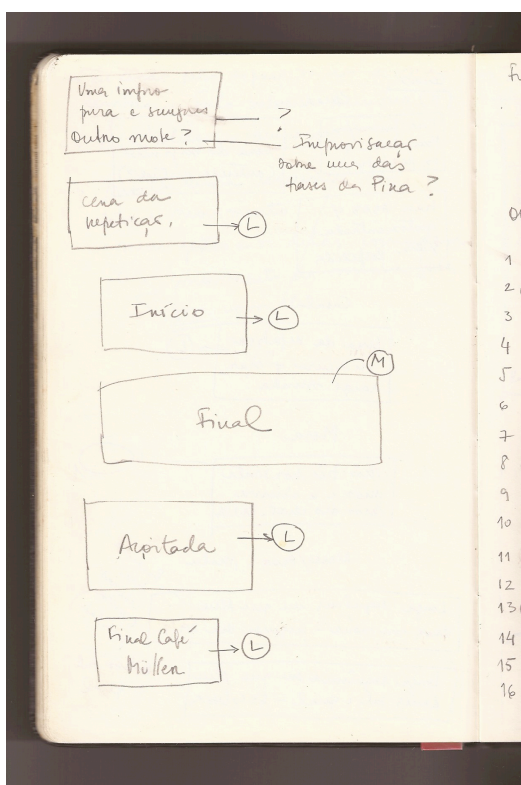 Uma impro
pura e simples
Outro mote?
?
Improvisação
sobre uma das
frases da Pina?
cena da
repetição.
L
Início
L
M
Final
Açoitada
L
Final Café
Müller
L
1
2
3
4
5
6
7
8
9
10
11
12
13
14
15
16